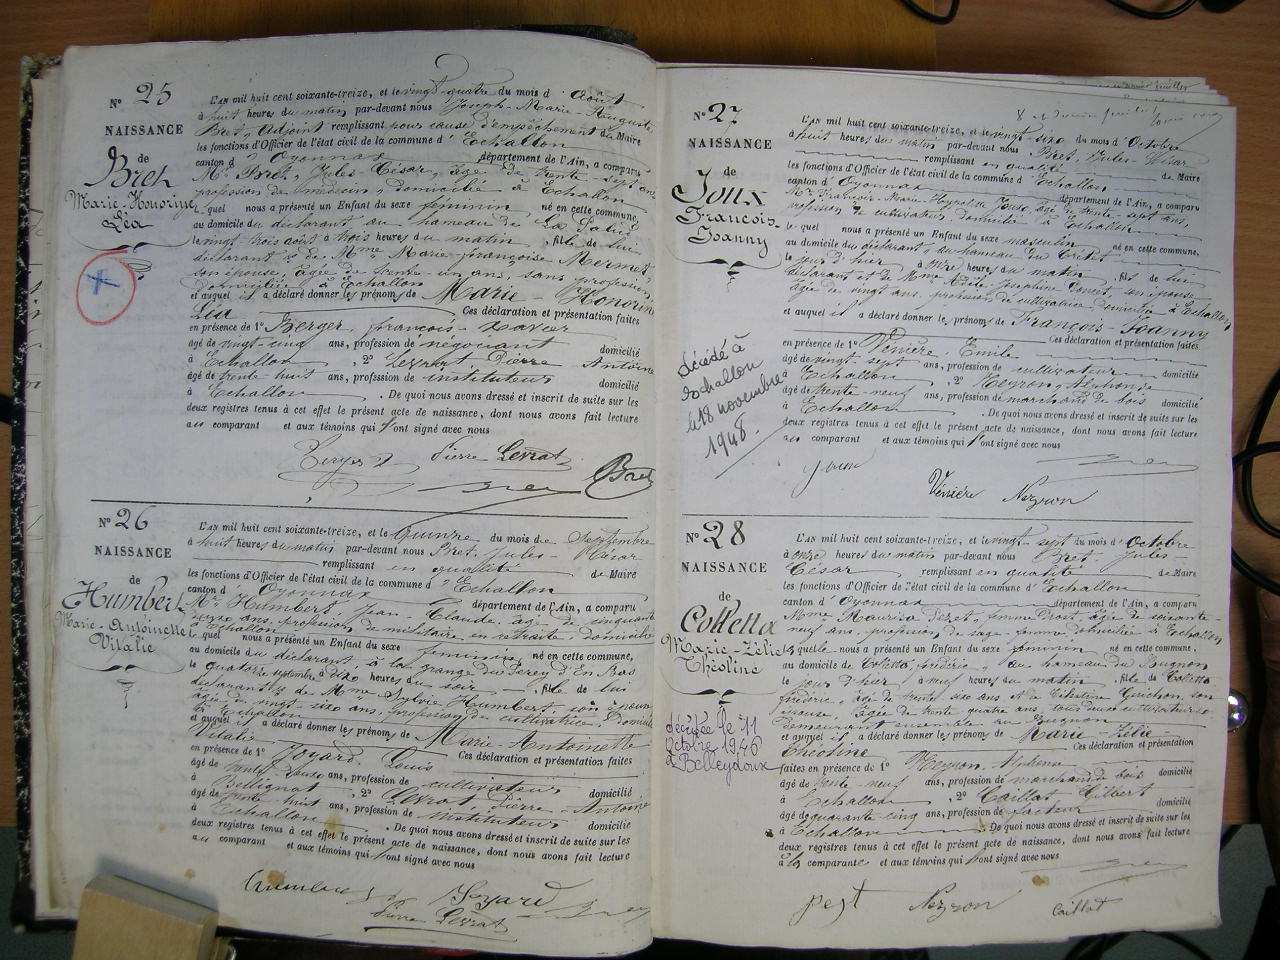 N° 25
NAISSANCE
de
Bret
Marie-Honorine
Léa
L'AN mil huit cent soixante-treize, et le vingt-quatre du mois d'Août
à huit heures du matin, par-devant nous Joseph-Marie-Auguste
Bret, Adjoint remplissant pour cause d'empêchement du Maire
les fonctions d'Officier de l'état civil de la commune d'Echallon
canton d'Oyonnax département de l'Ain, a comparu
Mr Bret, Jules-César, âgé de trente-sept ans
profession de médecin, domicilié à Echallon
lequel nous a présenté un Enfant du sexe féminin, né en cette commune,
au domicile du déclarant au hameau de La
le vingt-trois août à trois heures du matin, fille de lui
déclarant & de Mme Marie-françoise Mermet
son épouse, âgée de trente-un ans, sans profession
domiciliée à Echallon
et auquel il a déclaré donner les prénoms de Marie-Honorine
Léa Ces déclaration et présentation faites
en présence de 1° Berger, françois-xavier
âgé de vingt-cinq ans, profession de négociant domicilié
à Echallon, 2° Levrat Pierre Antoine
âgé de trente huit ans, profession de instituteur domicilié
à Echallon. De quoi nous avons dressé et inscrit de suite sur les
deux registres tenus à cet effet le présent acte de naissance, dont nous avons fait lecture
au comparant et aux témoins qui l'ont signé avec nous
Pierre Levrat Bret
N° 26
NAISSANCE
de
Humbert
Marie-Antoinette
Vitalie
L'AN mil huit cent soixante-treize, et le Quinze du mois de Septembre
à huit heures du matin par-devant nous Bret, Jules-César
remplissant en qualité de Maire
les fonctions d'Officier de l'état civil de la commune d'Echallon
canton d'Oyonnax département de l'Ain, a comparu
Mr Humbert, Jean-Claude, âgé de cinquante
ans, profession de militaire en retraite, domicilié
à Echallon
lequel nous a présenté un Enfant du sexe féminin, né en cette commune,
au domicile du déclarant, à la grange du Crey d'En Bas
le quatorze septembre à dix heures du soir, fille de lui
déclarant & de Mme Humbert son épouse
âgée de vingt-six ans, profession de cultivatrice, domiciliée
à Echallon
et auquel il a déclaré donner les prénoms de Marie-Antoinette
Vitalie Ces déclaration et présentation faites
en présence de 1° Joyard, Louis
âgé de ans, profession de cultivateur domicilié
à Bellignat, 2° Levrat, Pierre-Antoine
âgé de trente huit ans, profession d'instituteur domicilié
à Echallon. De quoi nous avons dressé et inscrit de suite sur les
deux registres tenus à cet effet le présent acte de naissance, dont nous avons fait lecture
au comparant et aux témoins qui l'ont signé avec nous
Joyard
Pierre Levrat
N° 27
NAISSANCE
de
Joux
François-
Joanny
Décédé à
Echallon
le 18 novembre
1948.
L'AN mil huit cent soixante-treize, et le vingt-six du mois d'Octobre
à huit heures du matin par-devant nous Bret, Jules-César
remplissant en qualité de Maire
les fonctions d'Officier de l'état civil de la commune d'Echallon
canton d'Oyonnax département de l'Ain, a comparu
Mr François-Marie Joux, âgé de trente-sept ans,
profession de cultivateur, domicilié à Echallon
lequel nous a présenté un Enfant du sexe masculin né en cette commune,
au domicile du déclarant, au hameau du Crétet
le jour d'hier à heures du matin, fils de lui
déclarant et de Mme Adèle-Joséphine son épouse
âgée de vingt ans, profession de cultivatrice domiciliée à Echallon
et auquel il a déclaré donner les prénoms de François-Joanny
Ces déclaration et présentation faites
en présence de 1° Vénière, Emile
âgé de vingt sept ans, profession de cultivateur domicilié
à Echallon, 2° Neyron, Alphonse
âgé de trente-neuf ans, profession de marchand de bois domicilié
à Echallon. De quoi nous avons dressé et inscrit de suite sur les
deux registres tenus à cet effet le présent acte de naissance, dont nous avons fait lecture
au comparant et aux témoins qui l'ont signé avec nous
Joux
Vénière Neyron
N° 28
NAISSANCE
de
Colletta
Marie-Zélie
Théotine
décédée le 11
Octobre 1946
à Belleydoux
L'AN mil huit cent soixante-treize, et le vingt-sept du mois d'Octobre
à onze heures du matin par-devant nous Bret Jules-
César remplissant en qualité de Maire
les fonctions d'Officier de l'état civil de la commune d'Echallon
canton d'Oyonnax département de l'Ain, a comparu
Mme femme Prost, âgée de soixante
neuf ans, profession de sage-femme domiciliée à Echallon
laquelle nous a présenté un Enfant du sexe féminin né en cette commune,
au domicile de Coletta frédéric, au hameau du Bugnon
le jour d'hier à neuf heures du matin, fille de Coletta
frédéric, âgé de trente six ans et de Guichon, son
épouse, âgée de trente quatre ans, tous deux cultivateurs
demeurant ensemble au Bugnon
et auquel il a déclaré donner les prénoms de Marie-Zélie-
Théotine Ces déclaration et présentation
faites en présence de 1° Neyron, Alphonse
âgé de trente-neuf ans, profession de marchand de bois domicilié
à Echallon, 2° Caillat Gilbert
âgé de quarante cinq ans, profession de facteur domicilié
à Echallon. De quoi nous avons dressé et inscrit de suite sur les
deux registres tenus à cet effet le présent acte de naissance, dont nous avons fait lecture
à la comparante et aux témoins qui l'ont signé avec nous
Neyron Caillat